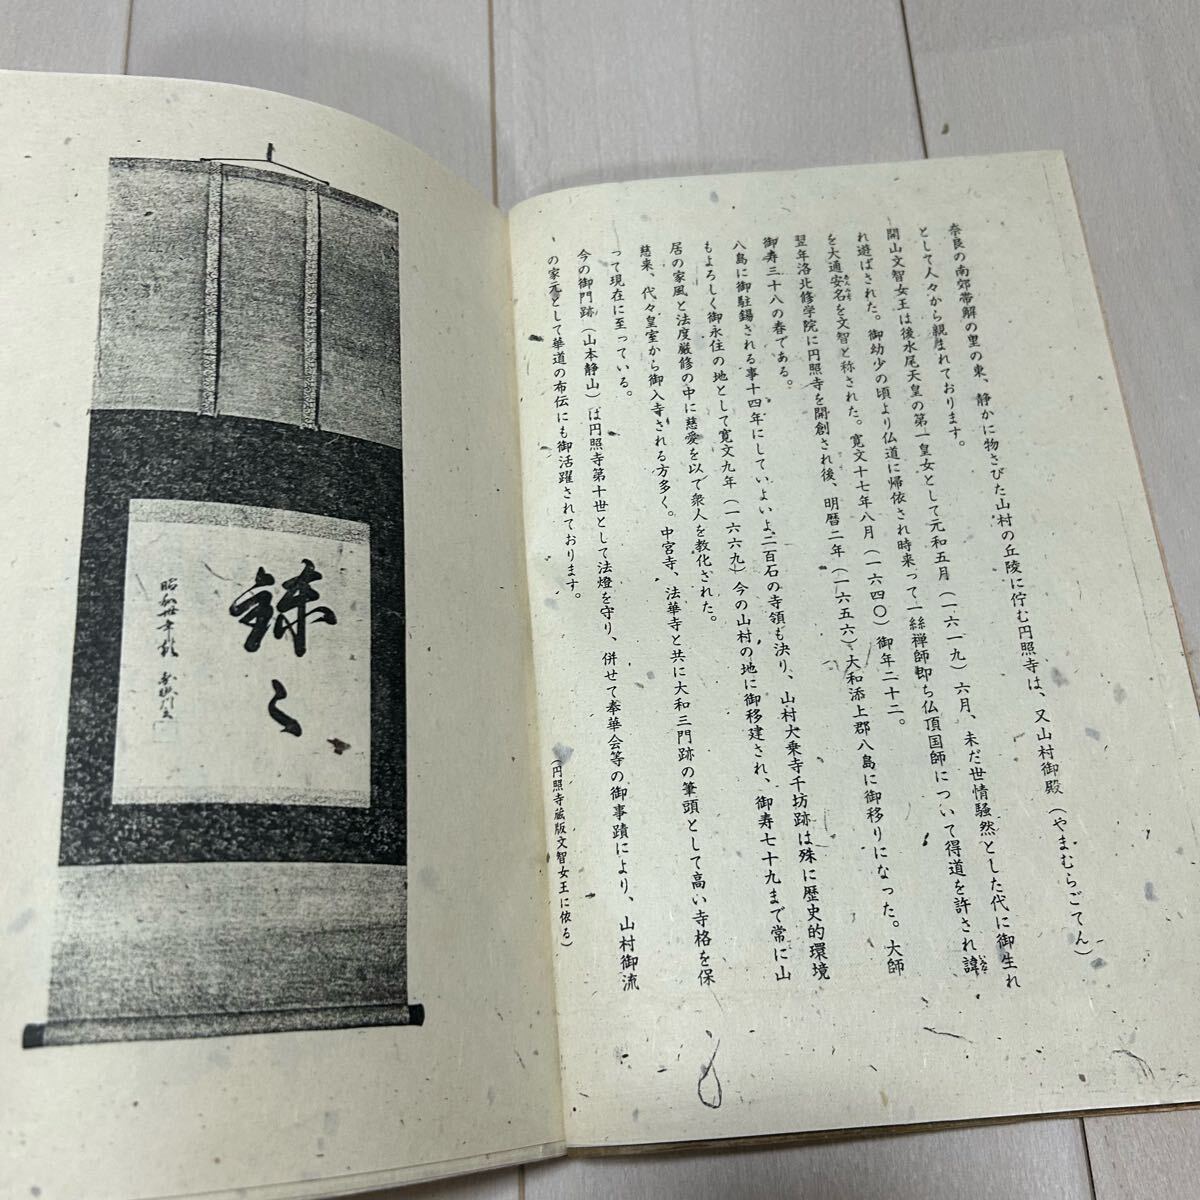 奈良の南郊帯解の里の東、静かに物さびた山村の丘陵に佇む円照寺は、又山村御殿(やまむらごてん)
として人々から親まれております。
開山文智女王は後水尾天皇の第一皇女として元和五月(一六一九)六月、未だ世情騒然とした代に御生れ
れ遊ばされた。御幼少の頃より仏道に帰依され時来って一絲禅師即ち仏頂国師について得道を許され諱
を大通安名を文智と称された。寛文十七年八月(一六四〇)御年二十二。
翌年洛北修学院に円照寺を開創され後、明暦二年(一六五六)大和添上郡八島に御移りになった。大師
御寿三十八の春である。
八島に御駐錫される事十四年にしていよいよ二百石の寺領も決り、山村大乗寺千坊跡は殊に歴史的環境
もよろしく御永住の地として寛文九年(一六六九)今の山村の地に御移建され、御寿七十九まで常に山
居の家風と法度厳修の中に慈愛を以て衆人を教化された。
慈来、代々皇室から御入寺される方多く。中宮寺、法華寺と共に大和三門跡の筆頭として高い寺格を保
って現在に至っている。
今の御門跡(山本静山)は円照寺第十世として法燈を守り、併せて奉華会等の御事蹟により、山村御流
の家元として華道の布伝にも御活躍されております。
(円照寺蔵版文智女王に依る)